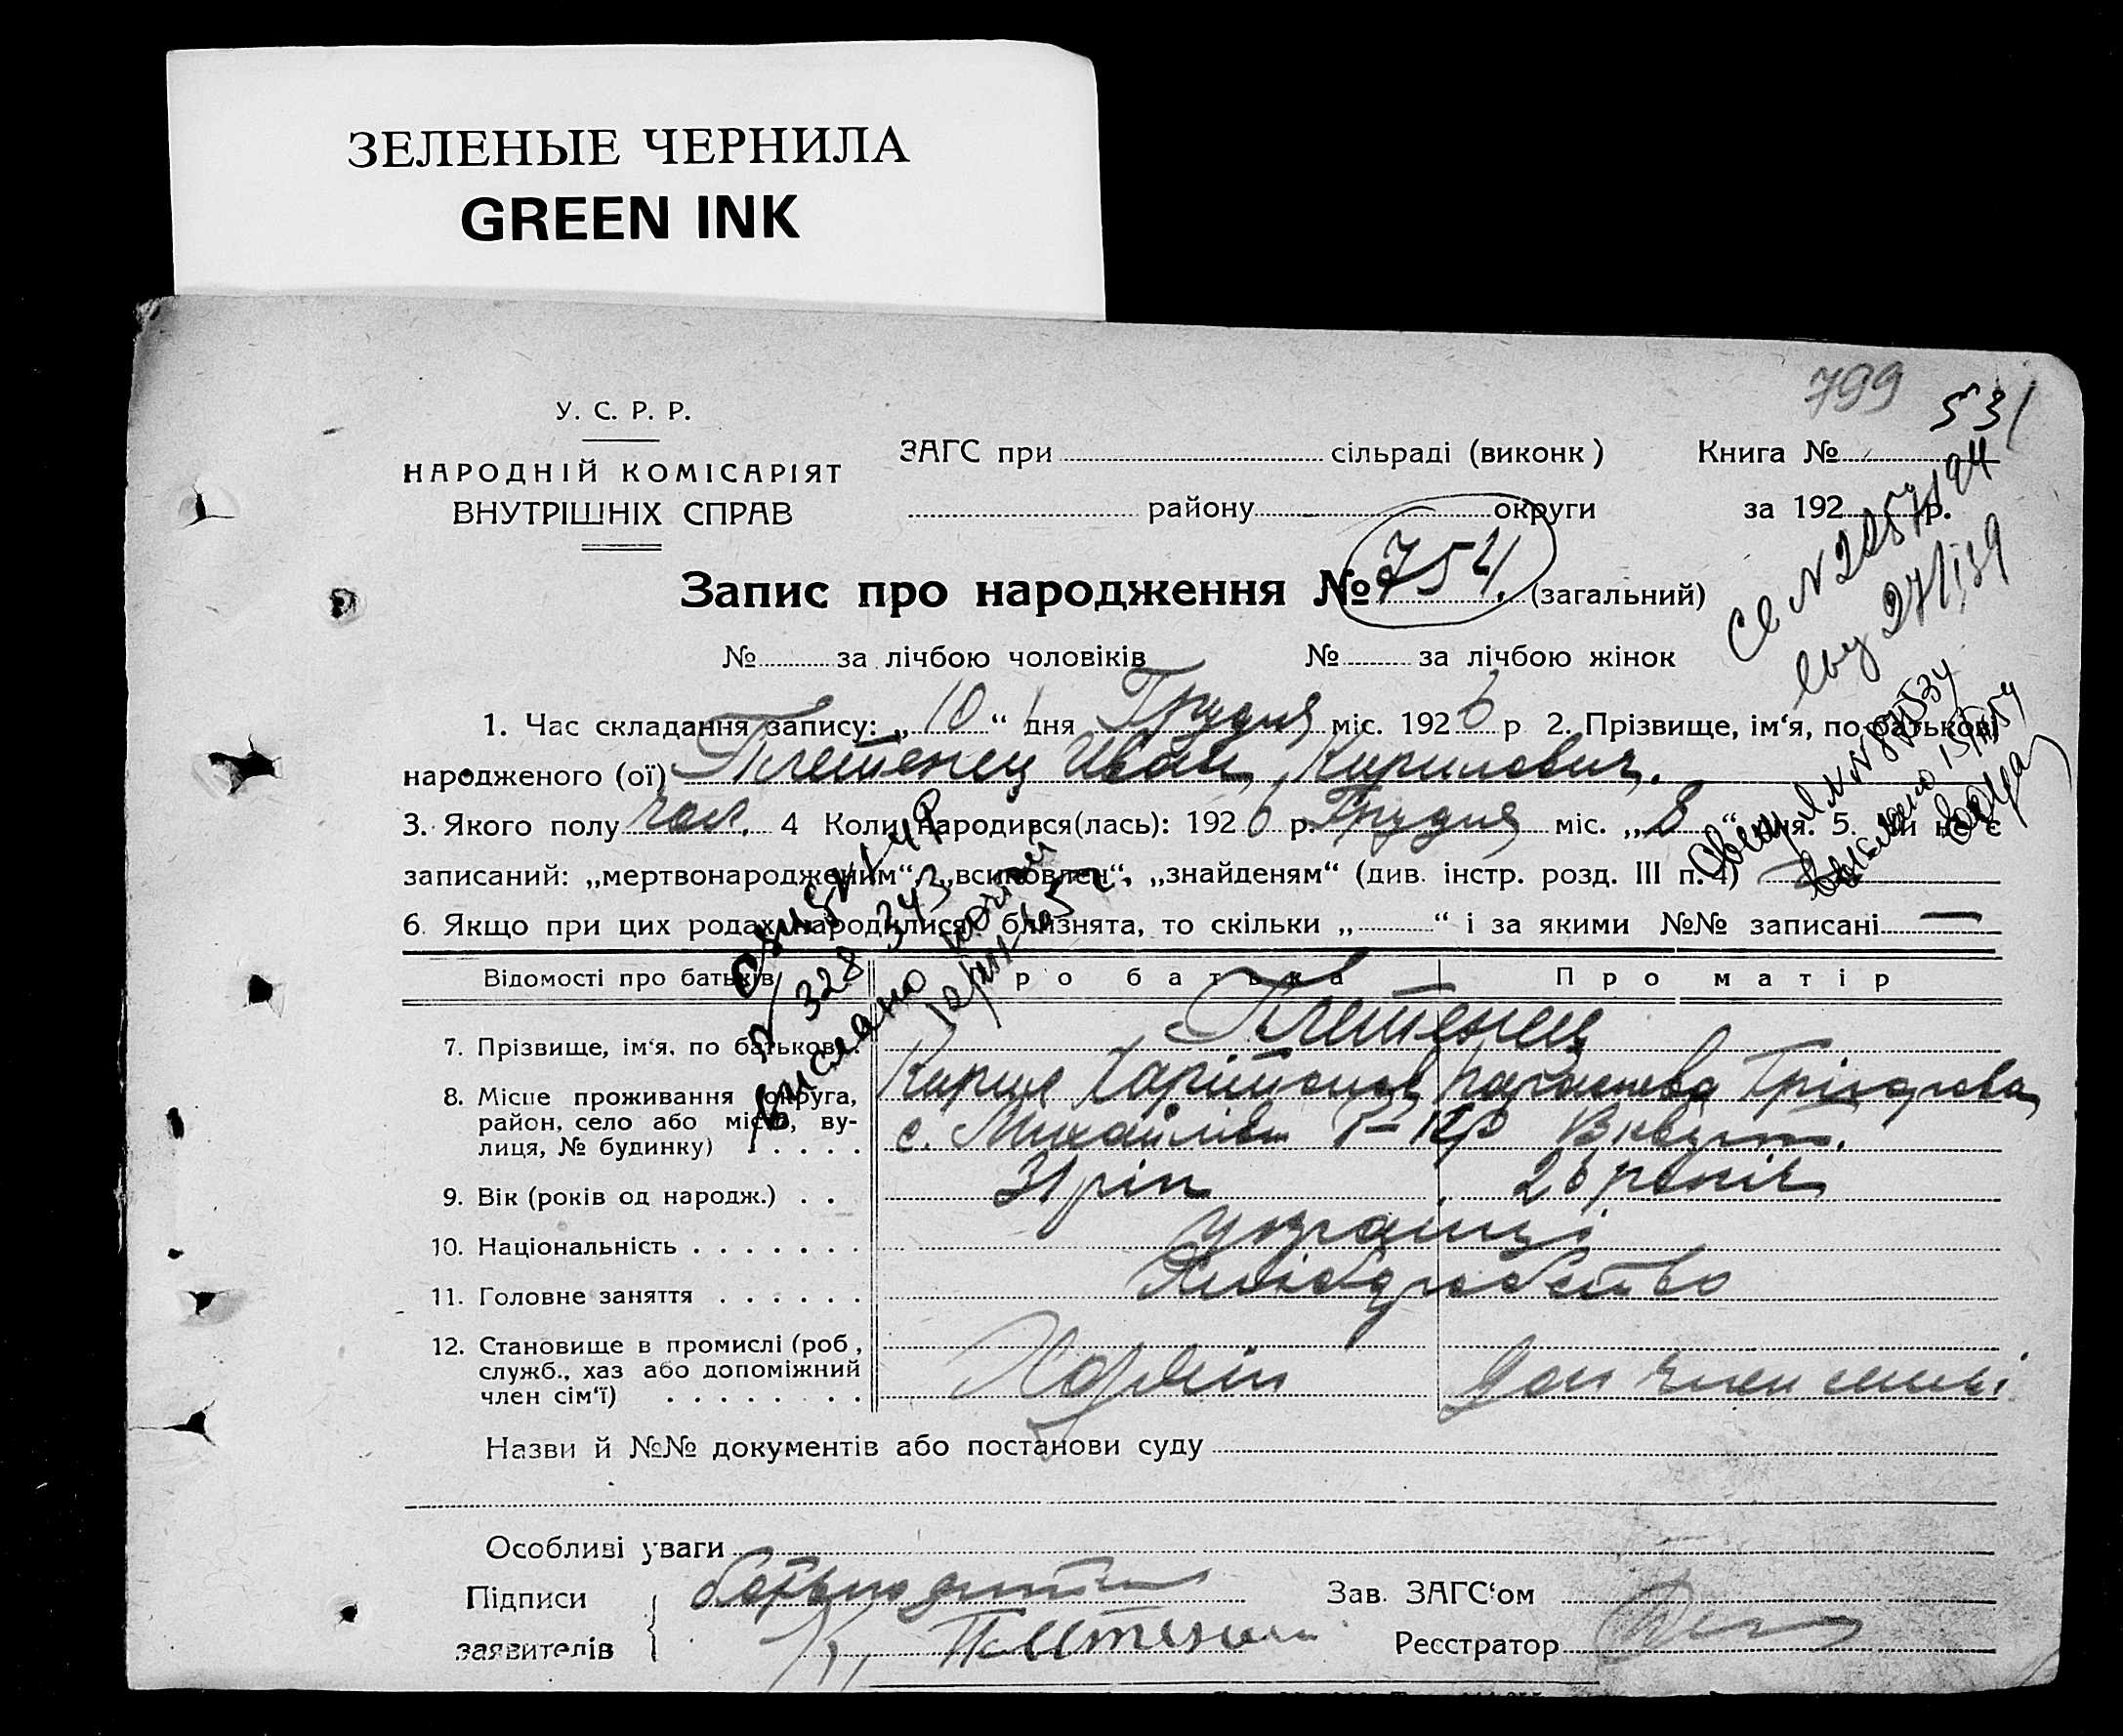 ЗЕЛЕНЫЕ ЧЕРНИЛА
GREEN INK
799
531
У. С. Р. Р.
НАРОДНІЙ КОМІСАРІЯТ
ВНУТРІШНІХ СПРАВ
ЗАГС при сільраді (виконк)
району округи
Книга №
за 192 р.
Запис про народження № 754. (загальний)
№ за лічбою чоловіків № за лічбою жінок
1. Час складання запису: „10“ дня Грудня міс. 1926 р 2. Прізвище, ім‘я, по батькові
народженого (ої) Плетенец Иван Кирилович.
3. Якого полу чол. 4 Коли народився(лась): 1926 р. Грудня міс. „8“ дня. 5. Чи не є
записаний: „мертвонародженим“, „всиновлен“, „знайденям“ (див. інстр. розд. III п. 4)
6. Якщо при цих родах народилися близнята, то скільки „ “ і за якими №№ записані —
Відомості про батьків Про батька Про матір
7. Прізвище, ім‘я, по батькові. Плетенец
8. Місце проживання (округа, район, село або місто, вулиця, № будинку) Кирил
с. Михайлівка
9. Вік (років од народж.) . . 31 рік 26 років
10. Національність . . . . . . . українці
11. Головне заняття . . . . . . Хліборобство
12. Становище в промислі (роб, служб., хаз або допоміжний член сім‘ї) . . . . . . . . Хазяїн доп член семьі
Назви й №№ документів або постанови суду
Особливі уваги
Підписи
заявителів
батько дитини
К. Плетенец
Зав. ЗАГС‘ом
Реєстратор
№ 328 343
вислано